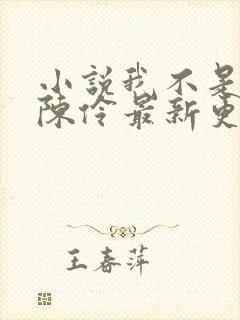 小説我不是
陳伶最新更
王春萍